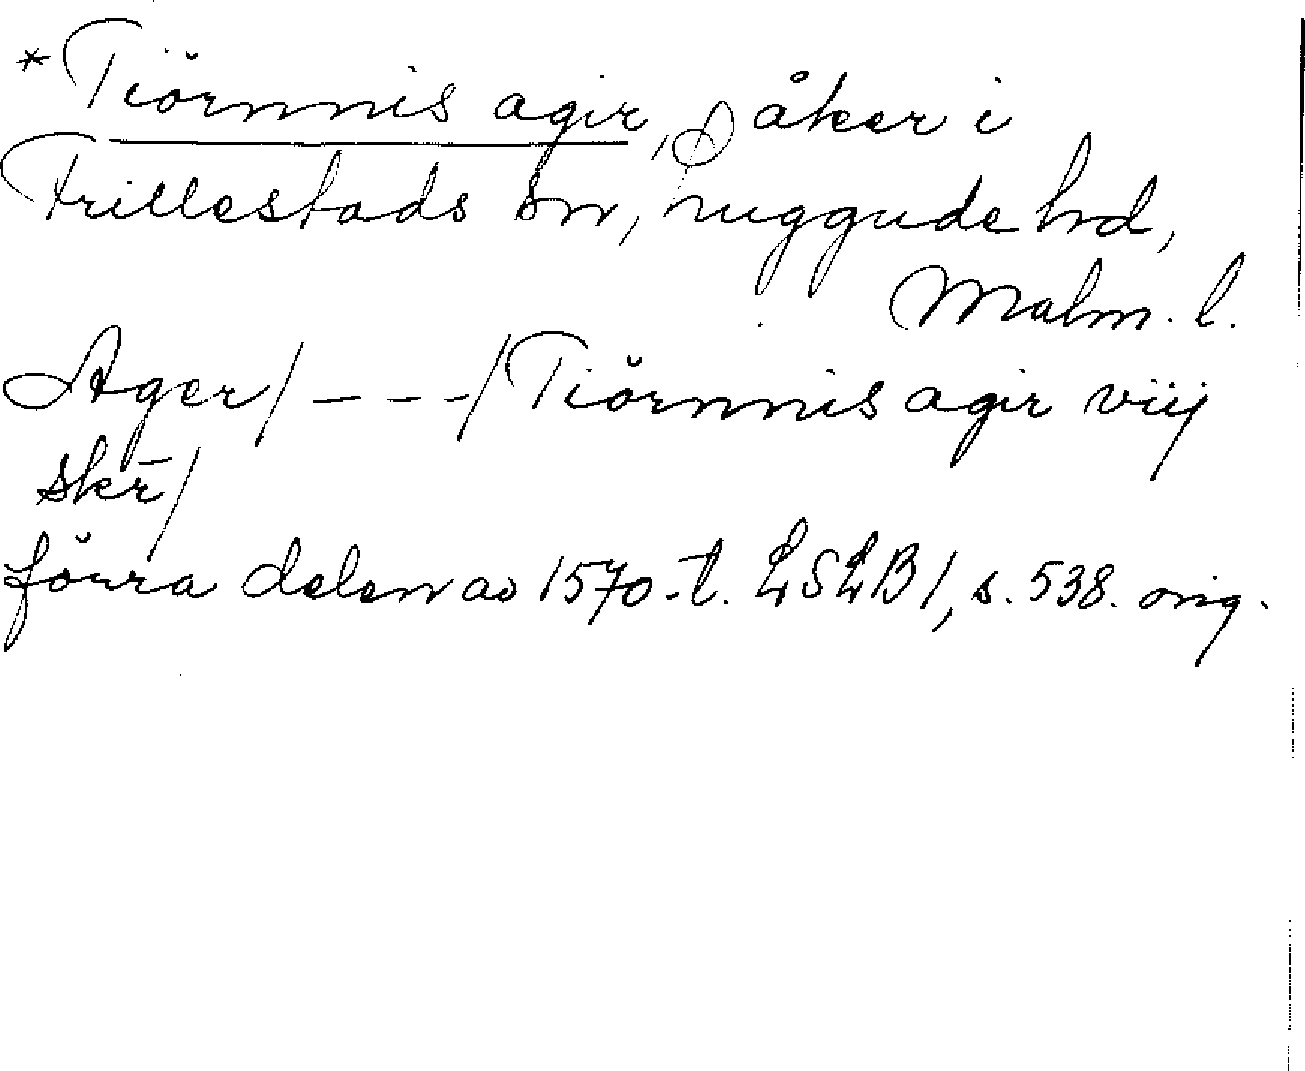 *Tiörnnis agir, åker i
Frillestads sn, Luggude hd,
Malm. l.
Ager/ - - - /Tiörnnis agir viij
skr̄/
förra delen av 1570-t. LSLB1, s. 538. orig.